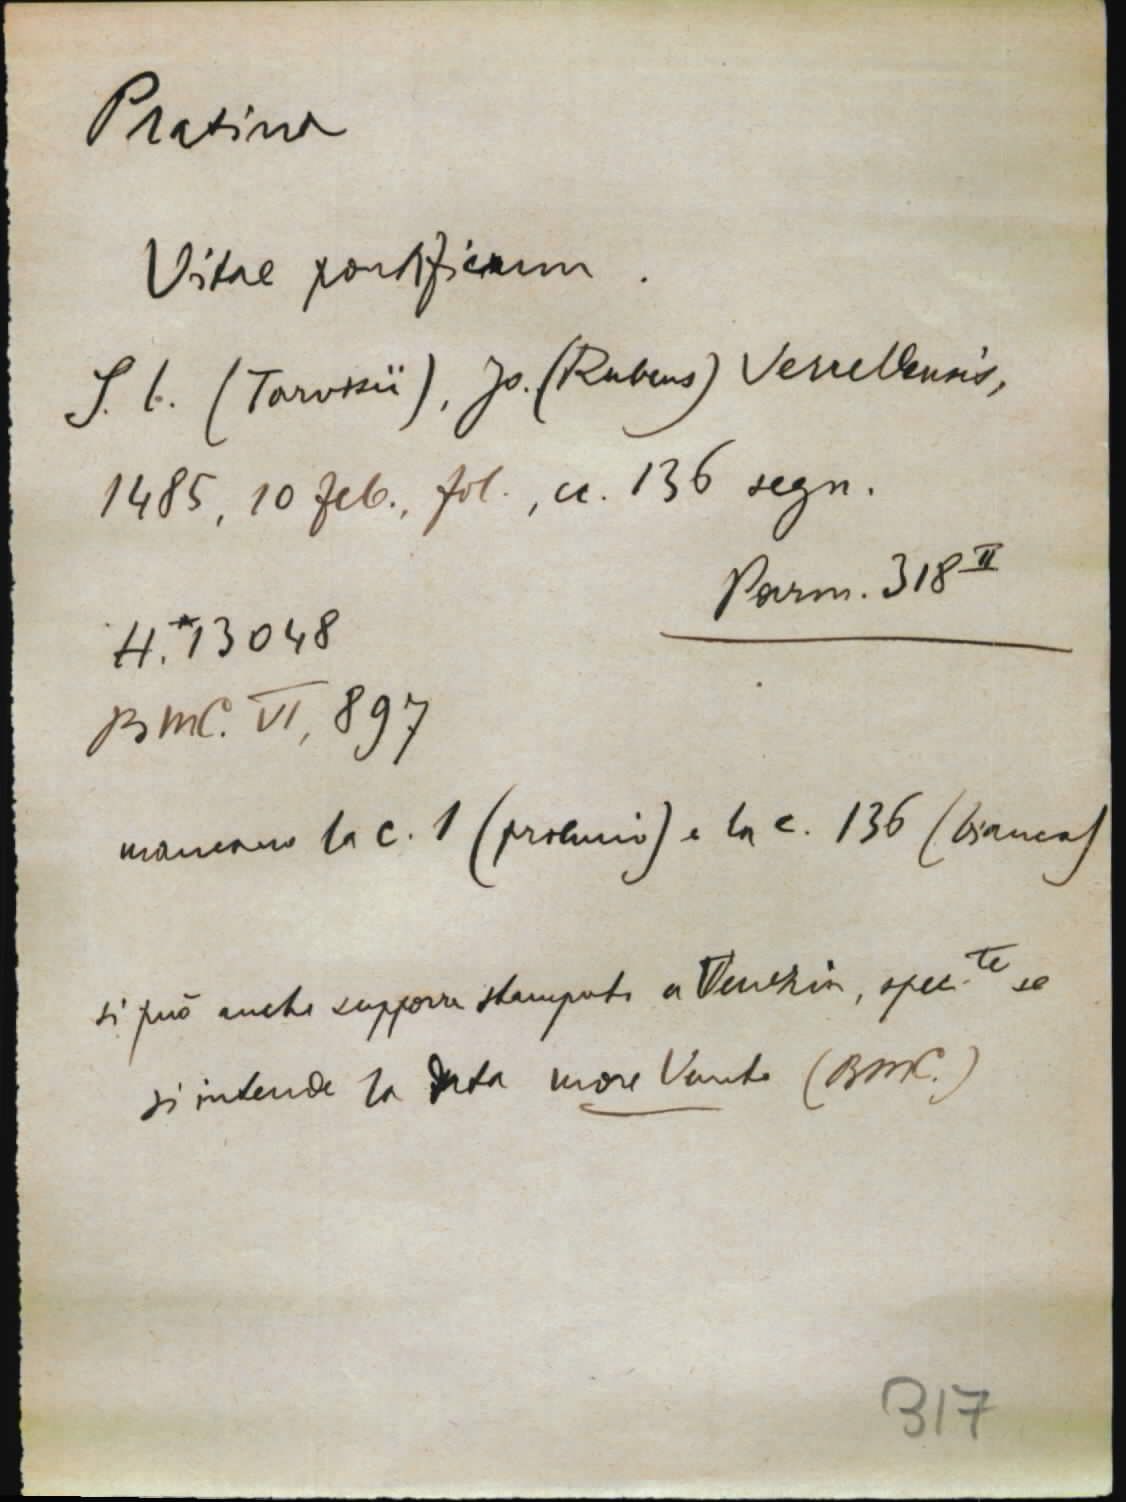 Platina
Vitae pontificum.
S. l. (Tarvisii), Jo. (Rubeus) Vercellensis,
1485, 10 feb., fol., cc. 136 segn.
Parm. 318 II
H. *13048
BMC. VI, 897
mancano la c. 1 (proemio) e la c. 136 (bianca)
si può anche supporre stampato a Venezia, spec.te se
si intende la data more Veneto (BMC.)
317